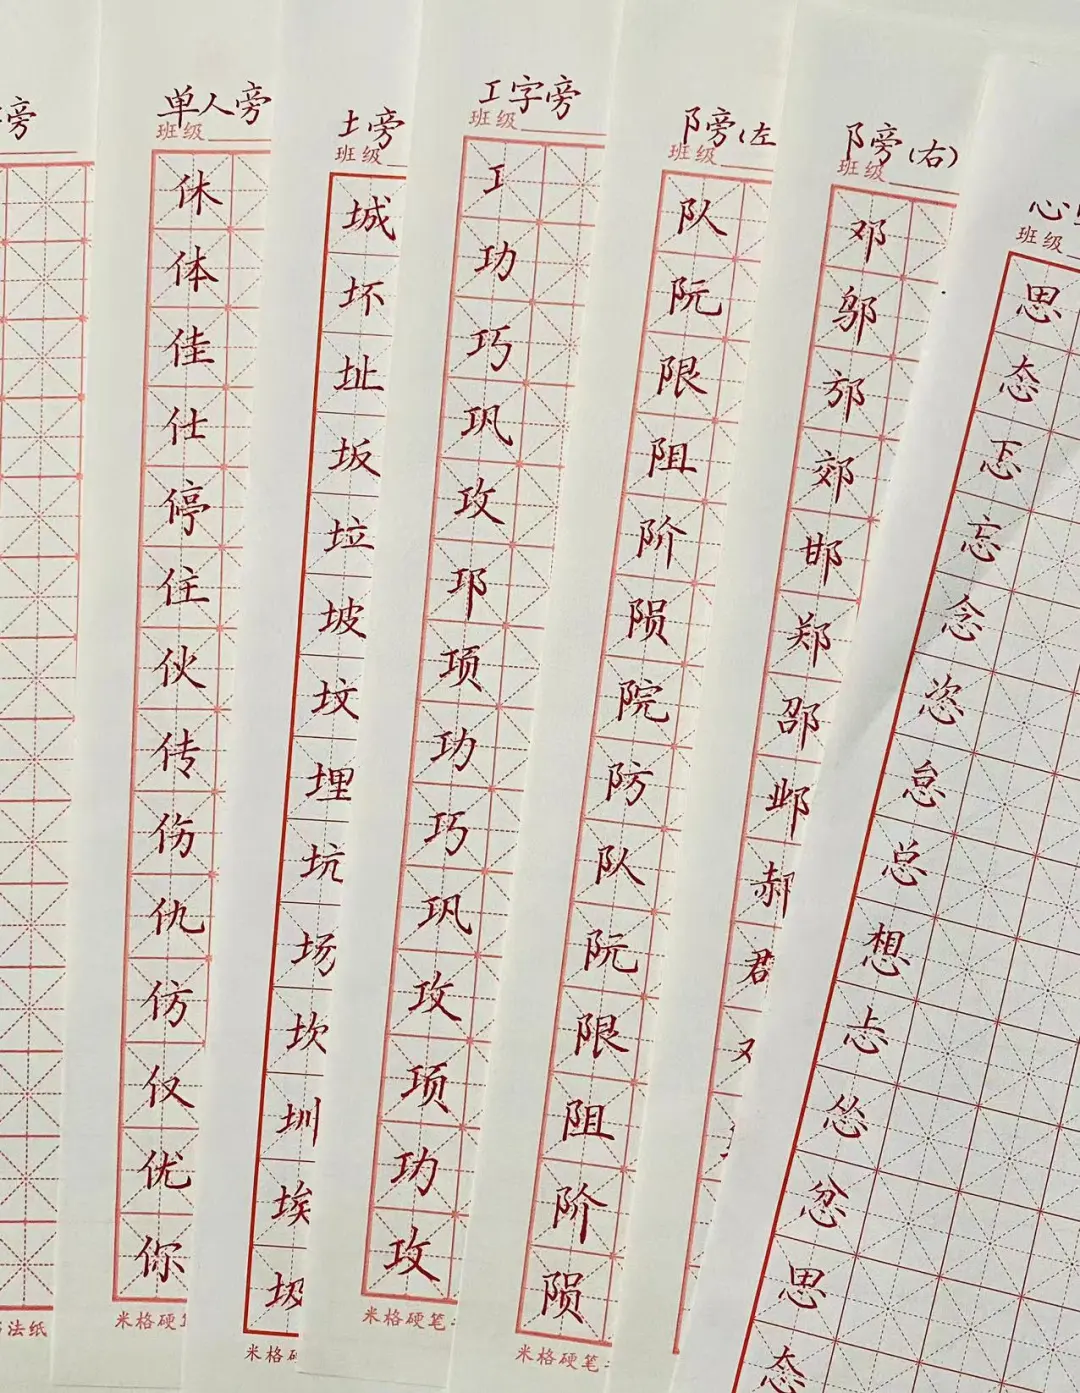 旁
法纸
单人旁
班级
休体佳仕停住伙传伤仇仿仅优你
米格硬
土旁
班级
城坏址坂垃坡坟埋坑场坎圳埃圾
米格
工字旁
班级
工功巧巩攻邛项功巧巩攻项功攻
米格硬笔
阝旁(左
班级
队阮限阻阶陨院防队阮限阻阶陨
米格硬笔
阝旁(右)
班级
邓邬邡郊邯郑邵邺郝君
心
班级
思态忑忘念恣怠总想忐怂忿思态